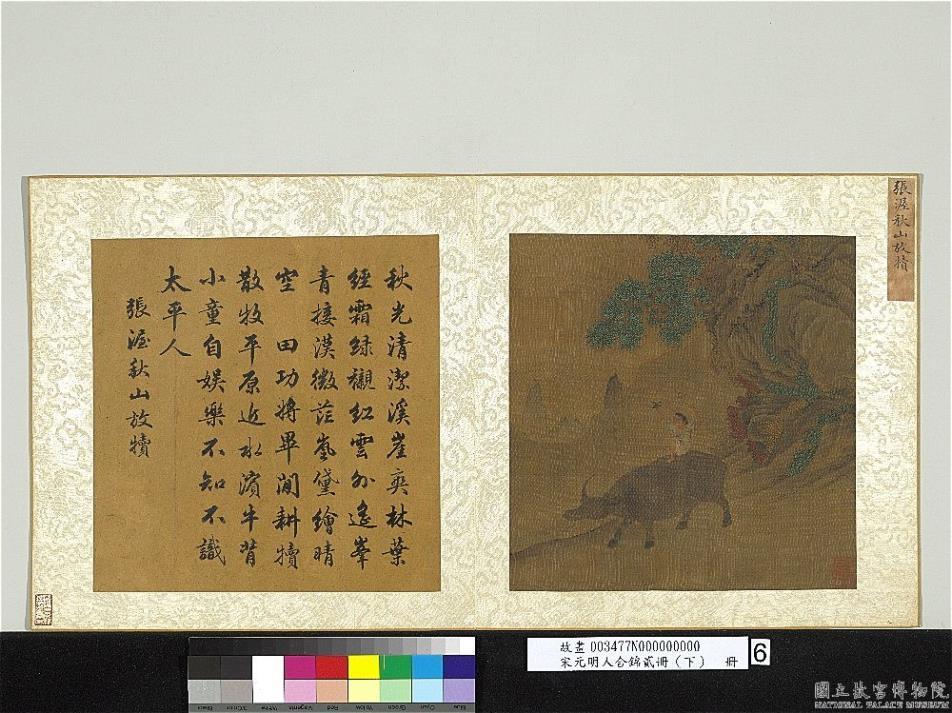 張渥秋山放犢
秋光清潔溪崖爽林葉
經霜綠襯紅雲外遙峯
青接漢微茫嵐黛繪晴
空田功將畢閒耕犢
散牧平原近水濱牛背
小童自娛樂不知不識
太平人
張渥秋山放犢
故畫 003477N000000000
宋元明人合錦貳冊(下) 冊
6
Black
3/Color
White
Magenta
Red
Yellow
Green
Cyan
Blue
國立故宮博物院
NATIONAL PALACE MUSEUM